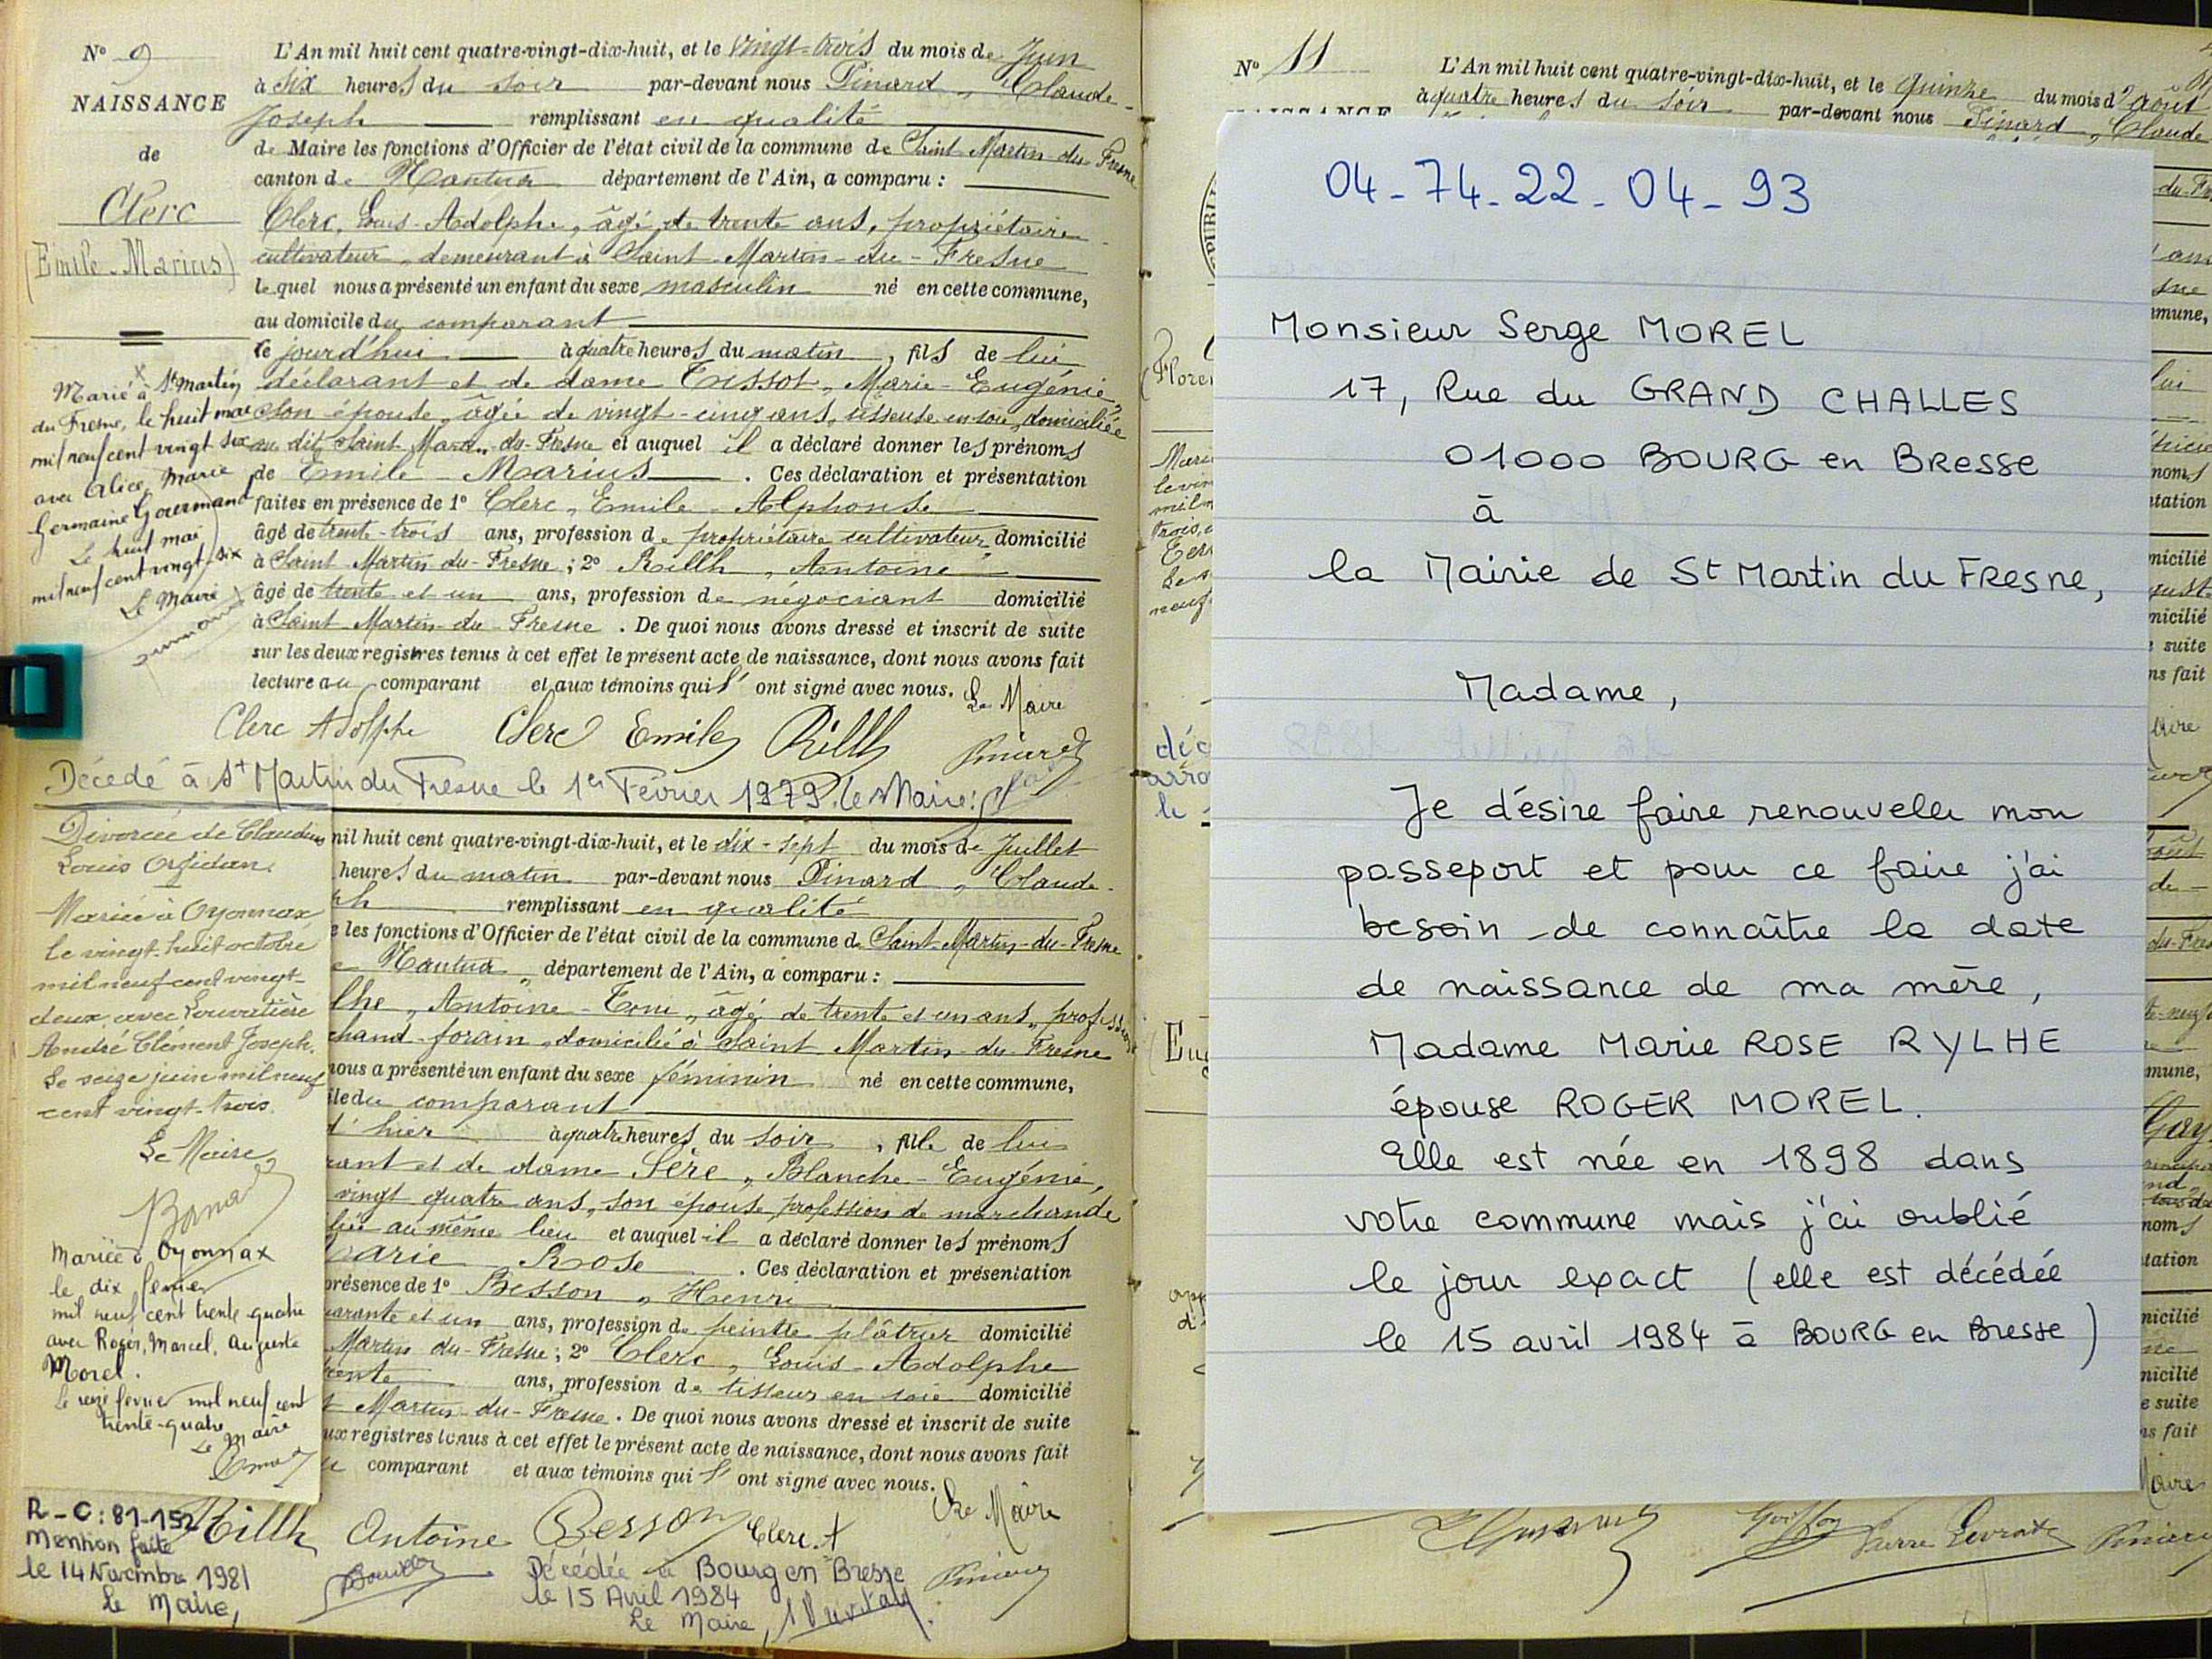 N° 9
NAISSANCE
de
Clerc
(Emile-Marius)
L'An mil huit cent quatre-vingt-dix-huit, et le vingt-trois du mois de Juin
à six heures du soir par-devant nous Pinard, Claude-
Joseph remplissant en qualité
de Maire les fonctions d'Officier de l'état civil de la commune de Saint-Martin-du-Fresne
canton de Nantua département de l'Ain, a comparu :
Clerc, Louis-Adolphe, âgé de trente ans, propriétaire
cultivateur, demeurant à Saint-Martin-du-Fresne
lequel nous a présenté un enfant du sexe masculin né en cette commune,
au domicile du comparant
ce jourd'hui à quatre heures du matin, fils de lui
déclarant et de dame Tissot, Marie-Eugénie,
son épouse, âgée de vingt-cinq ans, tisseuse en soie, domiciliée
au dit Saint-Martin-du-Fresne et auquel il a déclaré donner les prénoms
de Emile-Marius. Ces déclaration et présentation
faites en présence de 1° Clerc, Emile-Alphonse
âgé de trente-trois ans, profession de propriétaire cultivateur domicilié
à Saint-Martin-du-Fresne; 2° Rillh, Antoine
âgé de trente et un ans, profession de négociant domicilié
à Saint-Martin-du-Fresne. De quoi nous avons dressé et inscrit de suite
sur les deux registres tenus à cet effet le présent acte de naissance, dont nous avons fait
lecture au comparant et aux témoins qui l' ont signé avec nous. Le Maire
Clerc Adolphe Clerc Emile Rillh
Marié à St Martin
du Fresne, le huit mai
mil neuf cent vingt six
avec Alice, Marie
Germaine Gourmand
Le huit mai
mil neuf cent vingt-six
Le Maire
Décédé à St Martin du Fresne le 1er Février 1979. le Maire:
Divorcée de Claudius
Louis
Mariée à Oyonnax
le vingt-huit octobre
mil neuf cent vingt-
deux avec Louvatière
André Clément Joseph.
Le seize juin mil neuf
cent vingt-trois.
Le Maire
Mariée à Oyonnax
le dix février
mil neuf cent trente quatre
avec Roger, Marcel, Auguste
Morel.
Le février mil neuf cent
trente-quatre
Le Maire
R-C: 81-152
Mention faite
le 14 Novembre 1981
Le Maire,
mil huit cent quatre-vingt-dix-huit, et le dix-sept du mois de Juillet
heures du matin par-devant nous Pinard, Claude-
ph remplissant en qualité
e les fonctions d'Officier de l'état civil de la commune de Saint-Martin-du-Fresne
e Nantua, département de l'Ain, a comparu :
lhe, Antoine-Tony, âgé de trente et un ans, profession
chand forain, domicilié à Saint Martin-du-Fresne
nous a présenté un enfant du sexe féminin né en cette commune,
ile du comparant
d'hier à quatre heures du soir, fille de lui
rant et de dame Sère, Blanche-Eugénie,
vingt quatre ans, son épouse, profession de marchande
liée au même lieu et auquel il a déclaré donner les prénoms
Marie Rose. Ces déclaration et présentation
présence de 1° Besson, Henri
uarante et un ans, profession de peintre plâtrier domicilié
Martin-du-Fresne; 2° Clerc, Louis-Adolphe
trente ans, profession de tisseur en soie domicilié
t Martin-du-Fresne. De quoi nous avons dressé et inscrit de suite
ux registres tenus à cet effet le présent acte de naissance, dont nous avons fait
comparant et aux témoins qui l' ont signé avec nous.
Le Maire
Rillh Antoine Besson Clerc. A
Décédée à Bourg en Bresse
le 15 Avril 1984
Le Maire,
N° 11
L'An mil huit cent quatre-vingt-dix-huit, et le quinze du mois d'août
à quatre heures du soir par-devant nous Pinard, Claude
04-74-22-04-93
Monsieur Serge MOREL
17, Rue du GRAND CHALLES
01000 BOURG en BRESSE
à
la Mairie de St Martin du FRESNE,
Madame,
Je désire faire renouveler mon
passeport et pour ce faire j'ai
besoin de connaître la date
de naissance de ma mère,
Madame Marie ROSE RYLHE
épouse ROGER MOREL.
Elle est née en 1898 dans
votre commune mais j'ai oublié
le jour exact (elle est décédée
le 15 avril 1984 à BOURG en Bresse)
Pierre Levrat